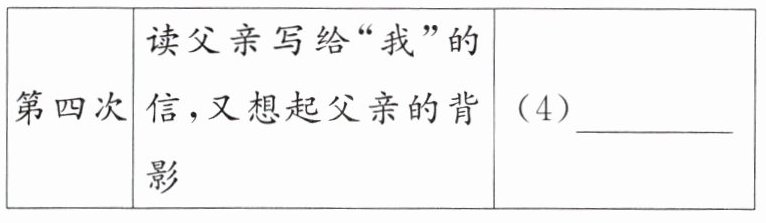 读父亲写给“我”的
第四次 信，又想起父亲的背 （4）________
影